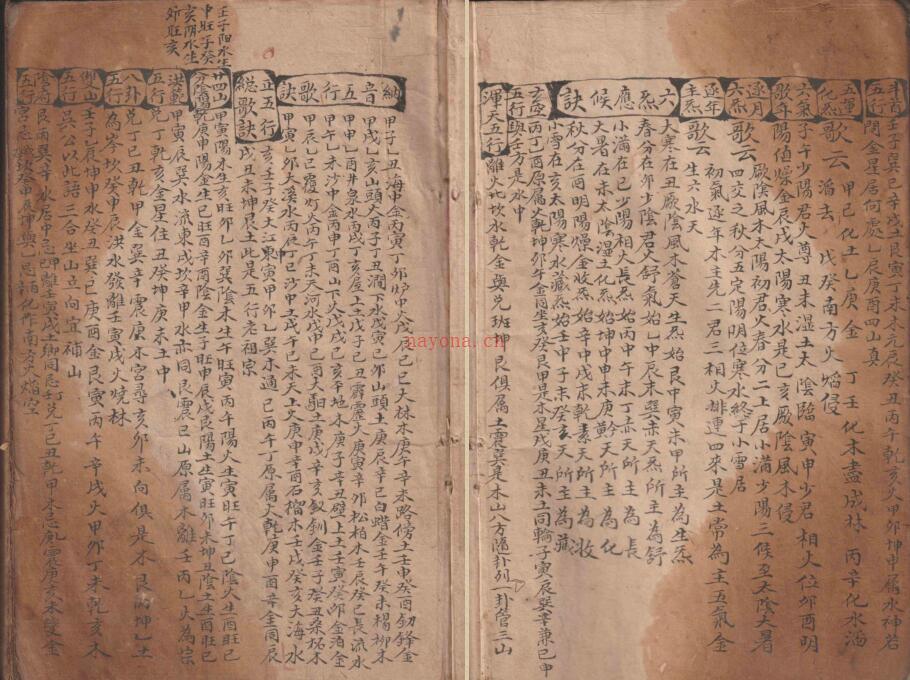 斗首五行
壬子巽巳辛戌土艮寅丁未木元辰癸丑丙午乾亥火甲卯坤申屬水神若
問金星居何處乙辰庚酉四山真
五運化炁
歌云 甲己化土乙庚金 丁壬化木盡成林 丙辛化水滔
滔去 戊癸南方火焰侵
六氣歌
子午少陽君火尊 丑未湿土太陰臨 寅申少君相火位 卯酉明
陽值燥金 辰戌太陽寒水是 巳亥厥陰風木侵
逐月六炁
歌云 厥陰風木太陽初 君火春分二上居 小滿少陽三候至 太陰大暑
四交之 秋分五定陽明位 寒水終于小雪居
逐年主炁
歌云 初氣逐年木主先 二君三相火排連 四來是土常為主 五氣金
生六水天
六炁應候訣
大寒在丑厥陰風木蒼天生炁始艮中寅末甲所主為生炁
春分在卯少陰君火舒氣始乙中辰末巽赤天炁所主為舒
小滿在巳少陽相火長炁始丙中午末丁赤天所主為長
大暑在未太陰湿土化炁始坤中申末庚黃天所主為化
秋分在酉陽明燥金收炁始辛中戌末乾素天所主為收
小雪在亥太陽寒水藏炁始壬中子末癸玄天所主為藏
玄空五行
丙丁乙酉原属火乾坤卯午金同坐亥癸艮甲是木星戌庚丑未土同輪子寅辰巽辛兼巳申
與壬方是水中
渾天五行
離火兮坎水乾金與兌班坤艮俱属土震巽是木山八方隨卦列一卦管三山
壬子阳水生
申旺子癸
亥阴水生
卯旺亥
納音五行歌訣
甲子乙丑海中金丙寅丁卯炉中火戊辰己巳大林木庚午辛未路傍土壬申癸酉劎鋒金
甲戌乙亥山頭火丙子丁丑澗下水戊寅己卯城頭土庚辰辛巳白蜡金壬午癸未楊柳木
甲申乙酉井泉水丙戌丁亥屋上土戊子己丑霹靂火庚寅辛卯松柏木壬辰癸巳長流水
甲午乙未沙中金丙申丁酉山下火戊戌己亥平地木庚子辛丑壁上土壬寅癸卯金泊金
甲辰乙巳覆灯火丙午丁未天河水戊申己酉大馹土庚戌辛亥釵釧金壬子癸丑桑柘木
甲寅乙卯大溪水丙辰丁巳沙中土戊午己未天上火庚申辛酉石榴木壬戌癸亥大海水
正五行總歌訣
亥壬子癸大江東寅甲卯乙巽木通巳丙午丁原属火乾庚申酉辛金同辰
戌丑未坤艮土此是五行老祖宗
廿四山分陰陽
甲寅陽木生亥旺卯乙卯巽陰木生午旺寅丙午陽火生寅旺午丁巳陰火生酉旺巳
乾庚申陽金生巳旺酉辛酉陰金生子旺申辰戌艮陽土生寅旺卯未坤丑陰土生酉旺巳
洪範五行
甲寅辰巽水流東戌坎辛申水亦同艮震巳山原属木離壬丙乙火為宗
兌丁乾亥金星住丑癸坤庚未土中
八卦五行
兌丁巳丑乾甲金巽辛震庚木宮尋亥卯未向俱是木艮丙坤乙土
為岑坎癸申辰洪水發離壬寅戌火燒林
五行
壬子乙辰坤申水癸丑巽巳庚酉金艮寅丙午辛戌火甲卯丁未乾亥木
吳公以此語三合坐山立向宜補山
五行